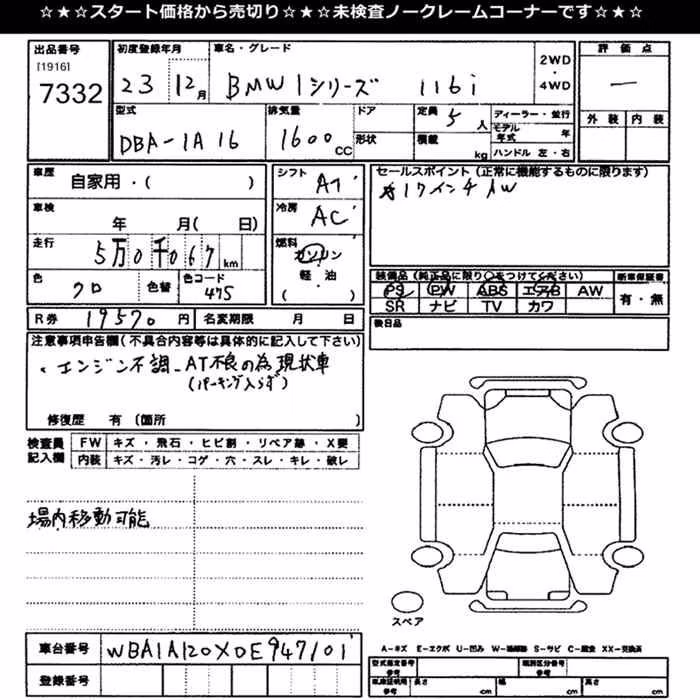 ☆★☆スタート価格から売切り☆★☆未検査ノークレームコーナーです☆★☆
出品番号 初度登録年月 車名・グレード 2WD ・ 4WD 評価点
[1916]
7332 23 12月 BMW 1シリーズ 116i —
外装 内装
型式 排気量 ドア 定員 5人 ディーラー・並行
DBA-1A16 1600CC 形状 積載 kg モデル年式 年
ハンドル 左・右
車歴 自家用・( ) シフト AT セールスポイント(正常に機能するものに限ります)
17インチAW
車検 年 月( 日) 冷房 AC
走行 5万0千067km 燃料 ガソリン
軽・油
( )
色 クロ 色替 色コード 475
装備品(純正品に限り○をつけてください) 新車保証書
PS PW ABS エアB AW 有・無
SR ナビ TV カワ
R券 19570円 名変期限 月 日 後日品
注意事項申告欄(不具合内容等は具体的に記入して下さい)
・エンジン不調 AT不良の為現状車
(パーキング入らず)
修復歴 有 (箇所 )
検査員 FW キズ・飛石・ヒビ割・リペア跡・X要
記入欄 内装 キズ・汚レ・コゲ・穴・スレ・キレ・破レ
場内移動可能
スペア
A-キズ E-エクボ U-凹み S-サビ XX-交換済
車台番号 WBA1A120X0E947101
登録番号
型式指定番号 参考 類別区分番号 参考
車庫証明用 参考 長さ cm 幅 cm 高さ cm